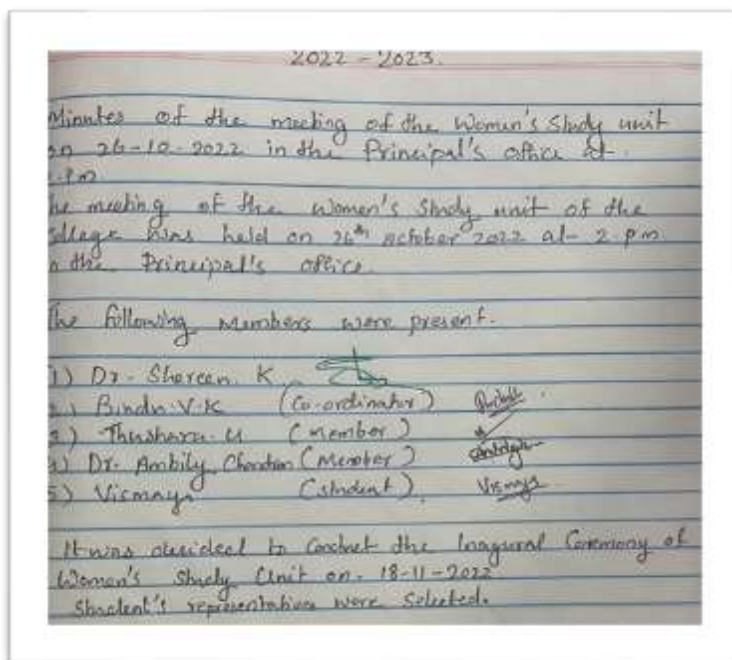 2022 - 2023.
Minutes of the meeting of the Women's Study unit
on 26-10-2022 in the Principal's office at
.pm
he meeting of the women's Study unit of the
ollage was held on 26th october 2022 at 2.pm
n the Principal's office.
The following members were present.
1) Dr. Shereen. K
2) Bindu.V.K (Co-ordinator)
3) Thushara.U (member)
4) Dr. Ambily Chandran (Member)
5) Vismaya (student) Vismaya
It was decided to Conduct the Inagural Ceremony of
Women's Study Unit on. 18-11-2022
Student's representatives were Selected.